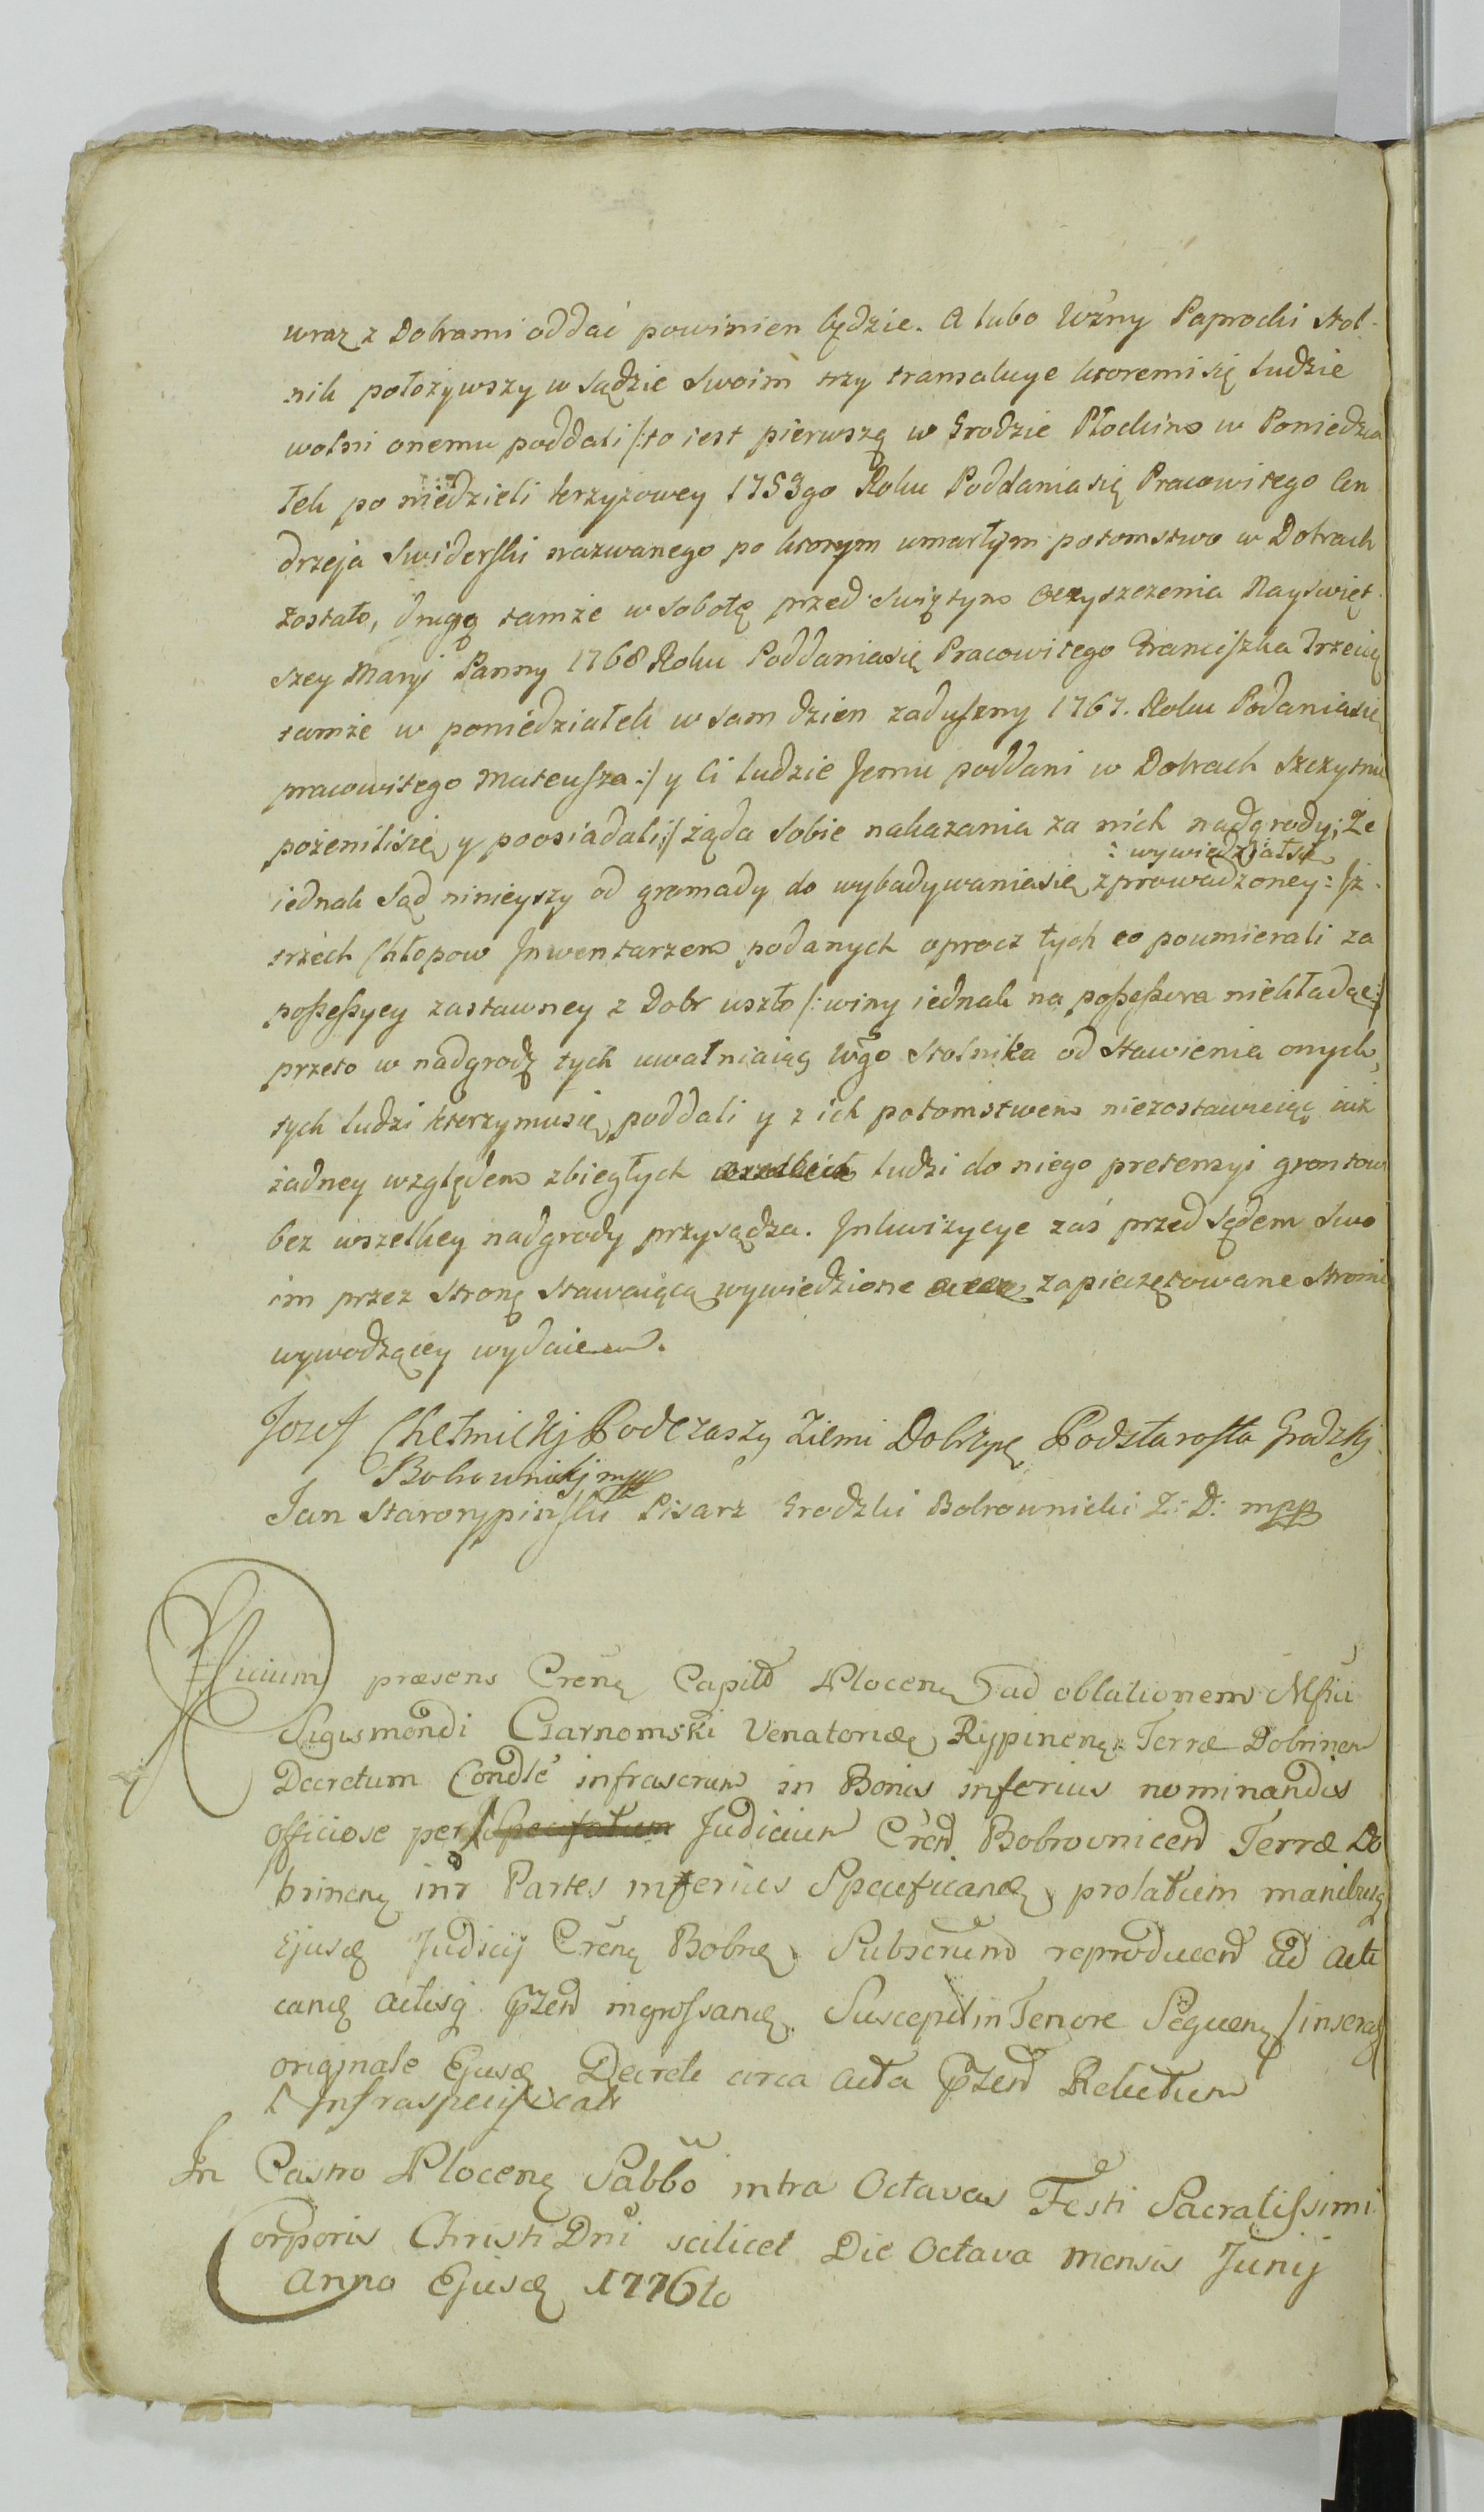 wraz z Dobrami oddać powinien będzie. A lubo Wżny Paprocki Stol-
nik położywszy w Sądzie Swoim trzy transakcye ktoremi się ludzie
wolni onemu poddali /:to iest pierwszą w Grodzie Płockim w Poniedzia
łek po niedzieli krzyżowey 1753go Roku Poddania się Pracowitego An
drzeja Swiderski nazwanego po ktorym umarłym potomstwo w Dobrach
zostało, drugą tamże w Sobotę przed Swiętym Oczyszczenia Nayswięt
szey Maryi Panny 1768 Roku Poddania się Pracowitego Franciszka Trzecią
tamże w poniedziałek w sam dzien zaduszny 1767. Roku Podania się
pracowitego Mateusza:/ y Ci ludzie Jemu poddani w Dobrach Szczytnie
pożenili się y poosiadali:/ żąda Sobie nakazania za nich nadgrody; Że
: wywiedział się
iednak Sąd ninieyszy od gromady do wybadywania się zprowadzoney: Jż
trzech Chłopow Jnwentarzem podanych oprocz tych co poumierali za
possessyey zastawney z Dobr uszło /: winy iednak na possessora niekładąc:/
przeto w nadgrodę tych uwalniaiąc Wgo Stolnika od Stawienia onych,
tych ludzi ktorzy mu się poddali y z ich potomstwem niezostawuiąc iuż
żadney względem zbiegłych ludzi do niego pretensyi grontow
bez wszelkey nadgrody przysądza. Jnkwizycye zaś przed Sądem Swo
im przez Stronę Stawaiącą wywiedzione zapieczętowane Stronie
wywodzącey wydaiem.
Jozef Chełmickj Podczaszy Ziemi Dobrzyń Podstarosta Grodzkj
Bobrownickj mpp
Jan Starorypinski Pisarz Grodzki Bobrownicki Z: D: mpp
Officium præsens Crenę Capitlo Plocenę ad oblationem Mfici
Sigismondi Czarnomski Venatoridę Rypinenę Terræ Dobrinen
Decretum Condle infrascrum in Bonis inferius nominandis
officiose per Specifatum Judicium Cren Bobrovnicen Terræ Do
brinenę intr Partes inferius Specificandę prolatum manibusq
Ejusdę Judicij Crenę Bobrę Subscrum reproducen ad acti
candę actisq przen ingrossandę Suscepit in Tenore Sequenę /inseraę
originale Ejusdę Decreti circa acta przen Relictum
Λ Jnfraspecificati
Jn Castro Plocenę Sabbo intra Octavas Festi Sacratissimi
Corporis Christi Dni scilicet Die Octava mensis Junij
Anno Ejusdę 1776to